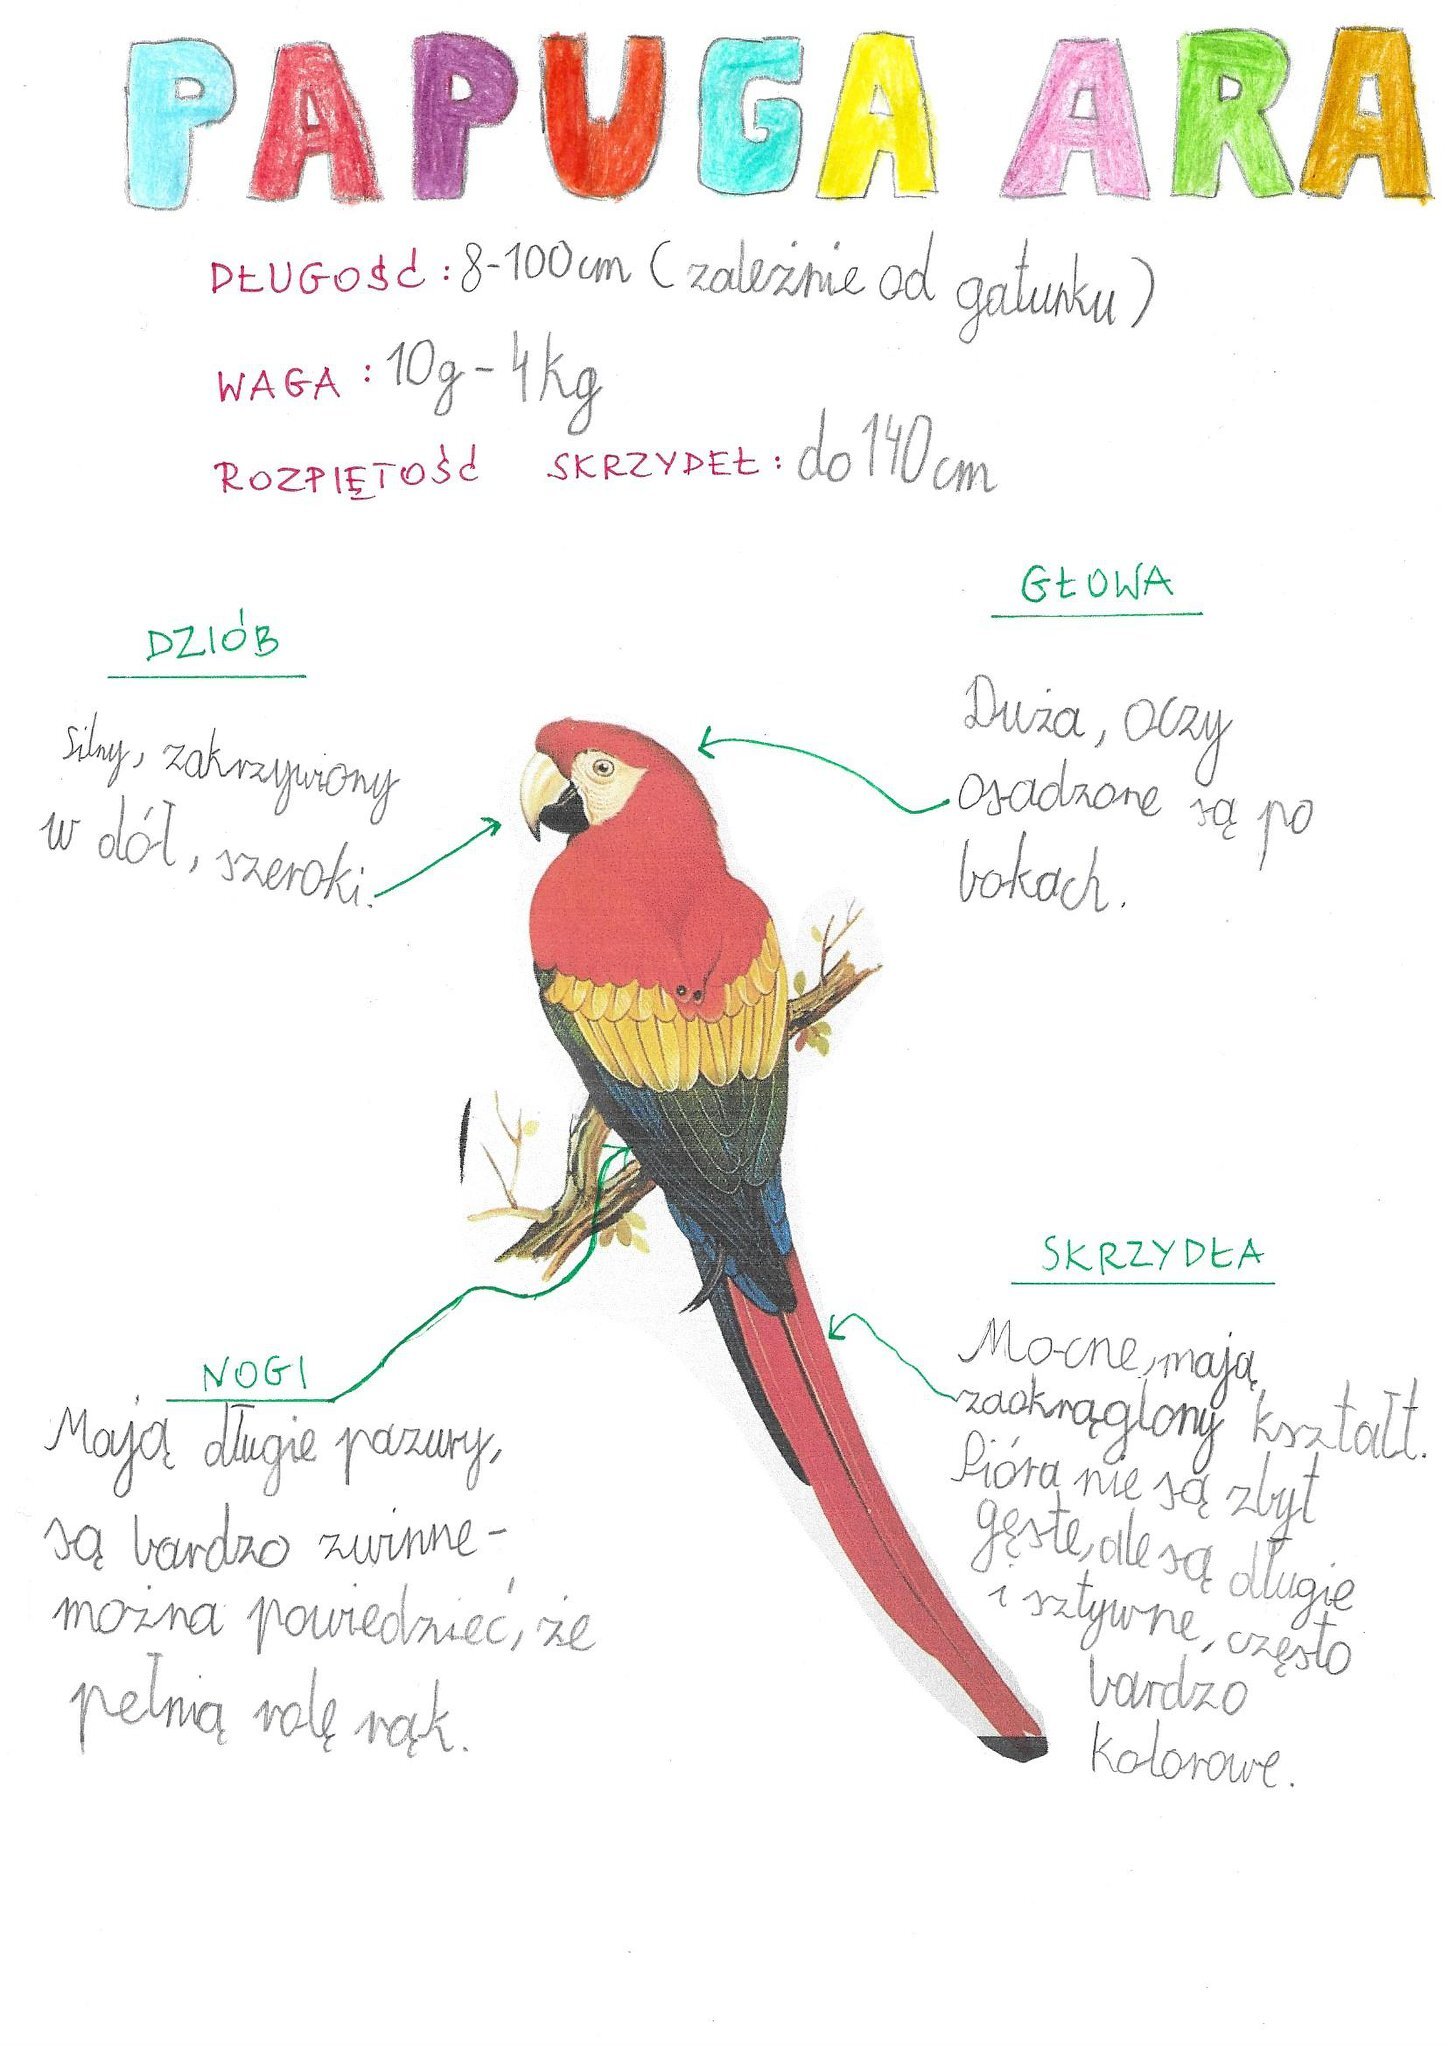 PAPUGA ARA
DŁUGOŚĆ: 8-100cm (zależnie od gatunku)
WAGA: 10g - 4kg
ROZPIĘTOŚĆ SKRZYDEŁ: do 140cm
DZIÓB
Silny, zakrzywiony
w dół, szeroki.
GŁOWA
Duża, oczy
osadzone są po
bokach.
NOGI
Mają długie pazury,
są bardzo zwinne-
można powiedzieć, że
pełnią rolę rąk.
SKRZYDŁA
Mocne, mają
zaokrąglony kształt.
Pióra nie są zbyt
gęste, ale są długie
i sztywne, często
bardzo
kolorowe.